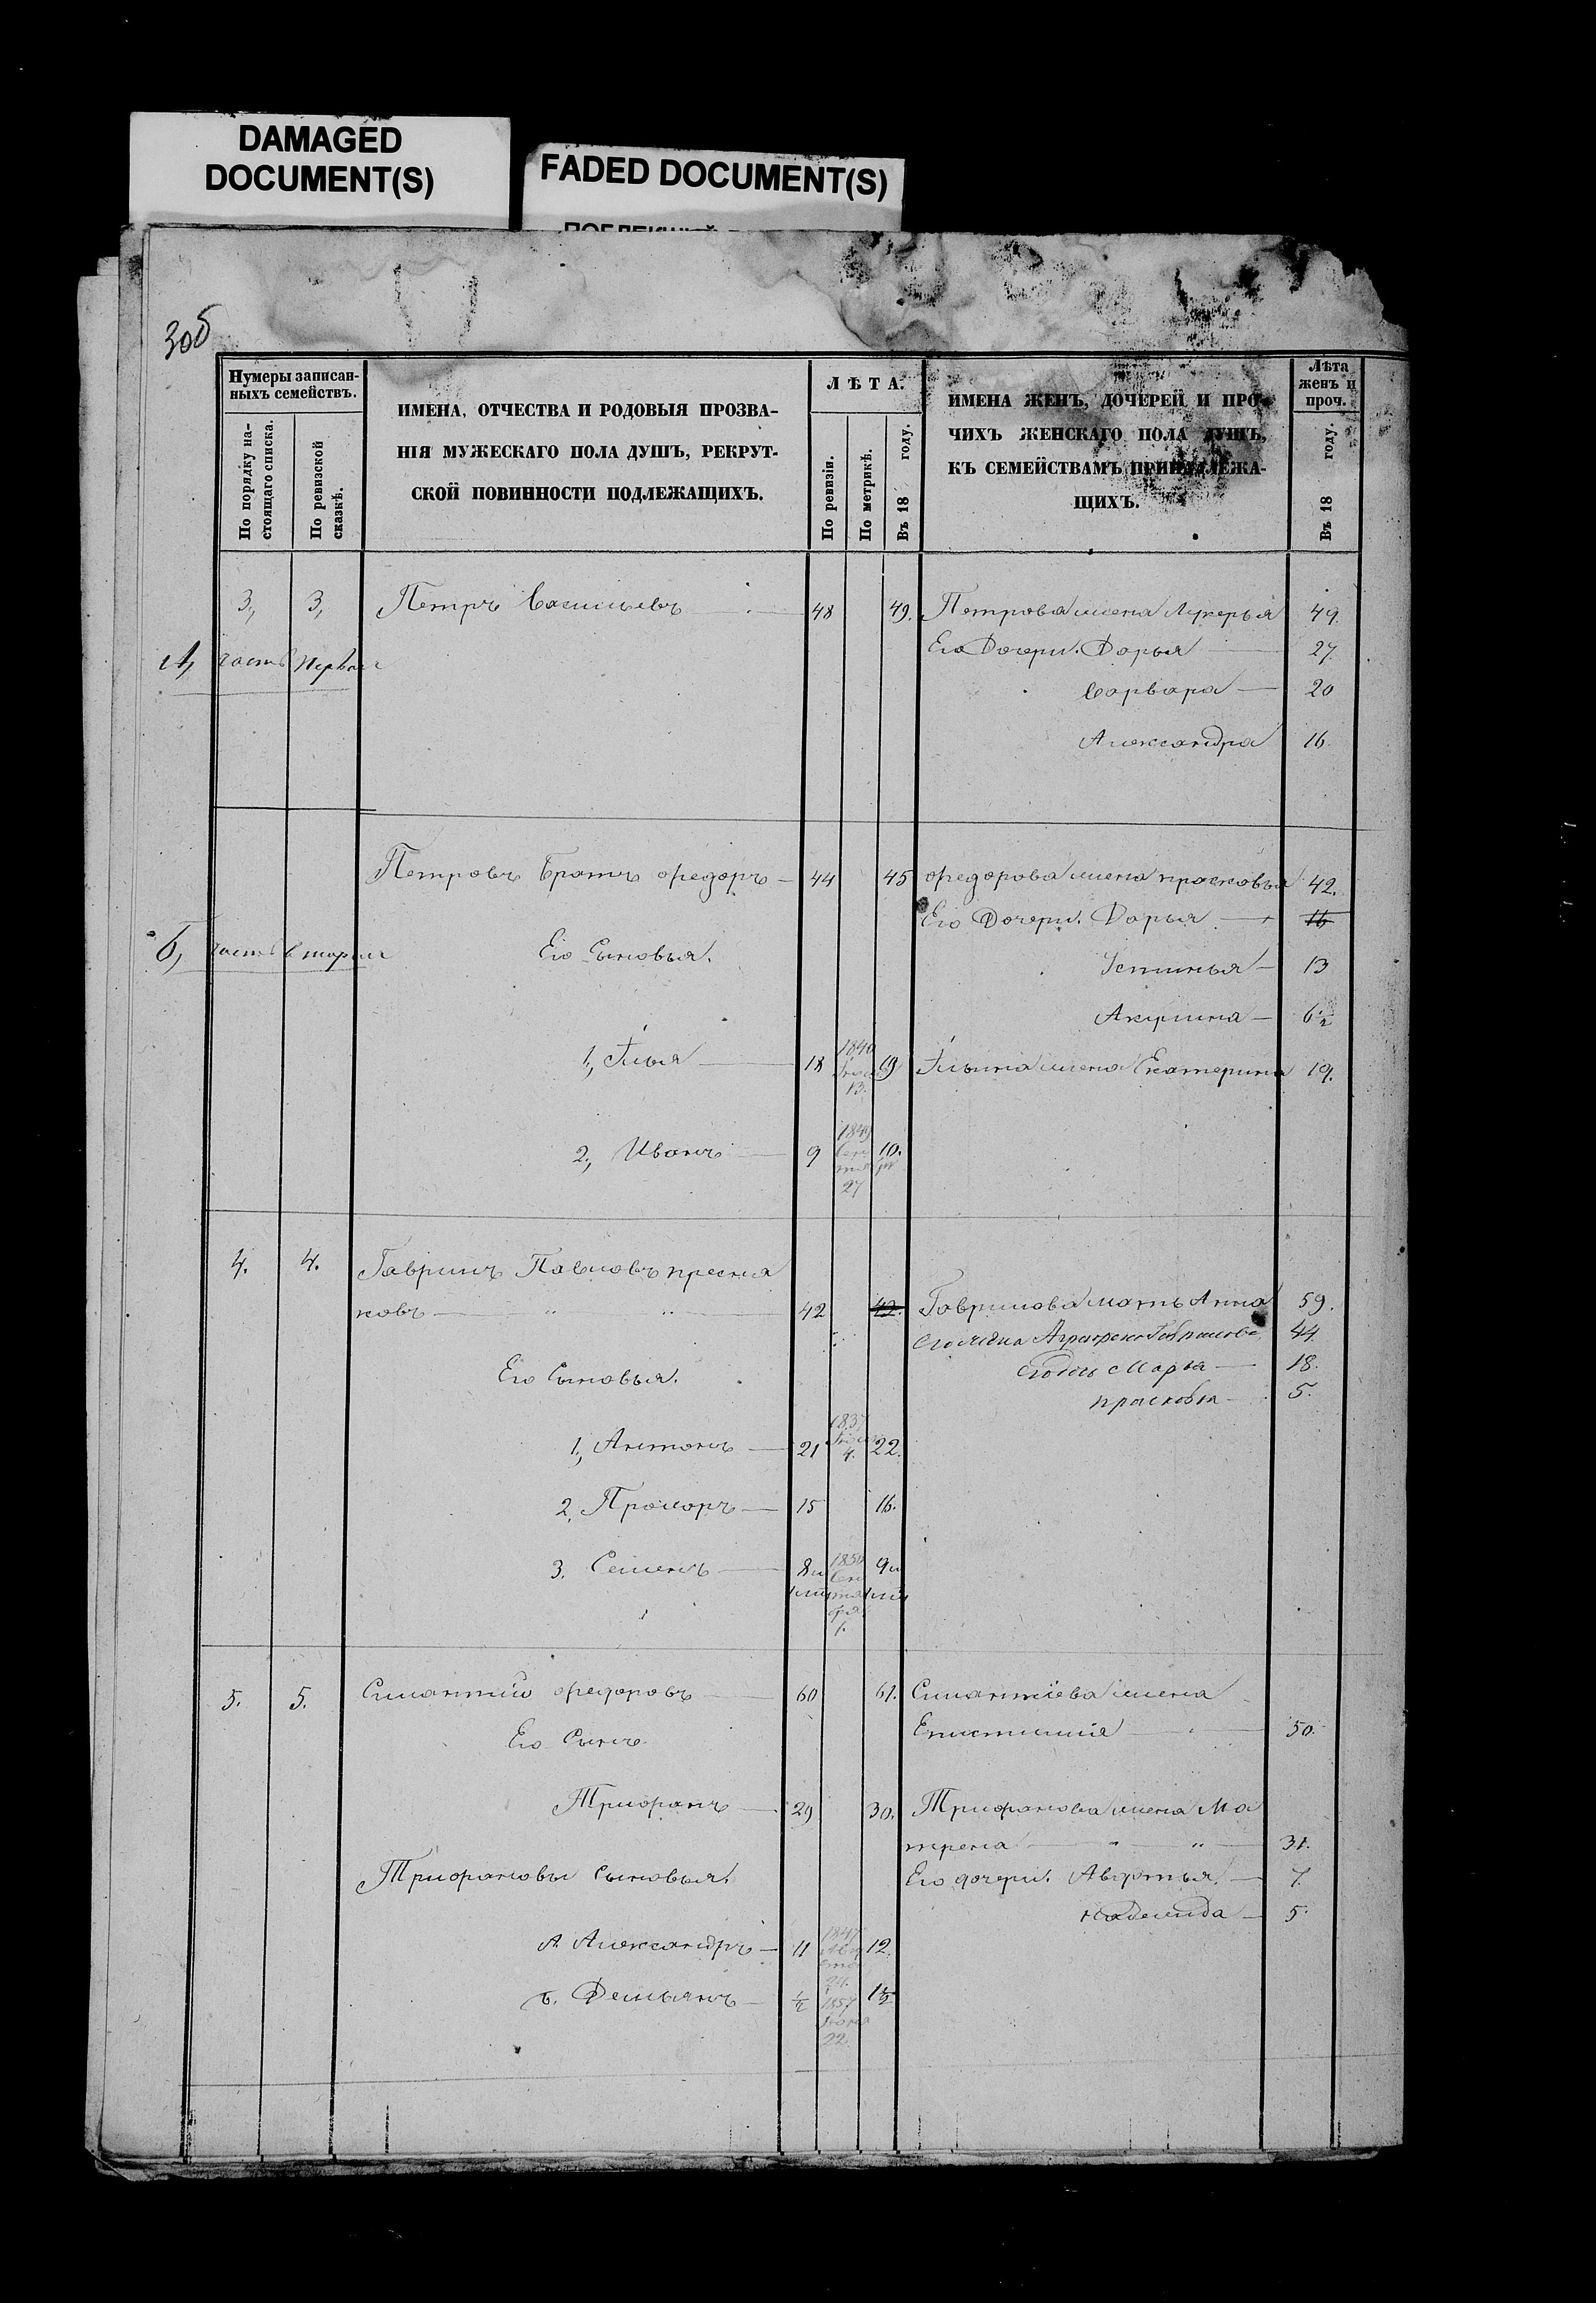 DAMAGED
DOCUMENT(S)
FADED DOCUMENT(S)
305
Нумеры записан-
ныхъ семействъ.
По порядку на-
стоящаго списка.
По ревизской
сказкѣ.
ИМЕНА, ОТЧЕСТВА И РОДОВЫЯ ПРОЗВА-
НІЯ МУЖЕСКАГО ПОЛА ДУШЪ, РЕКРУТ-
СКОЙ ПОВИННОСТИ ПОДЛЕЖАЩИХЪ.
ЛѢТА.
По ревизіи.
По метрикѣ.
Въ 18 году.
ИМЕНА ЖЕНЪ, ДОЧЕРЕЙ И ПРО-
ЧИХЪ ЖЕНСКАГО ПОЛА ДУШЪ,
КЪ СЕМЕЙСТВАМЪ ПРИНАДЛЕЖА-
ЩИХЪ.
Лѣта
женъ и
проч.
Въ 18 году.
3, 3, Петръ Васильевъ 48 49. Петрова жена Лукерья 49.
А, часть первая Его Дочери. Дарья 27
Варвара 20
Александра 16.
Петровъ Братъ Федоръ 44 45 Федорова жена Прасковья 42.
Его Дочери. Дарья 16
Б, часть вторая Его Сыновья. Устинья 13
Акулина 6½
1, Илья 18 1840 13. 19 Ильина жена Екатерина 19.
2, Иванъ 9 1849 Сентября 27 10.
4. 4. Гаврилъ Павловъ Пресня
ковъ 42 42. Гаврилова мать Анна 59.
Его жена Аграфена Гаврилова 44
Его дочь Марья 18.
Его Сыновья. Прасковья 5.
1, Антонъ 21 1837 4. 22.
2, Прохоръ 15 16.
3. Семенъ 8и 1850 Сентября 1. 9и
5. 5. Силантий Федоровъ 60 61. Силантиева жена
Епистимия 50.
Его Сынъ
Трифанъ 29 30. Трифанова жена Ма
трена 31.
Трифановы Сыновья. Его дочери. Авдотья 7.
Надежда 5.
А. Александръ 11 1847 Августа 24. 12.
Б. Демьянъ ½ 1857 22 1½